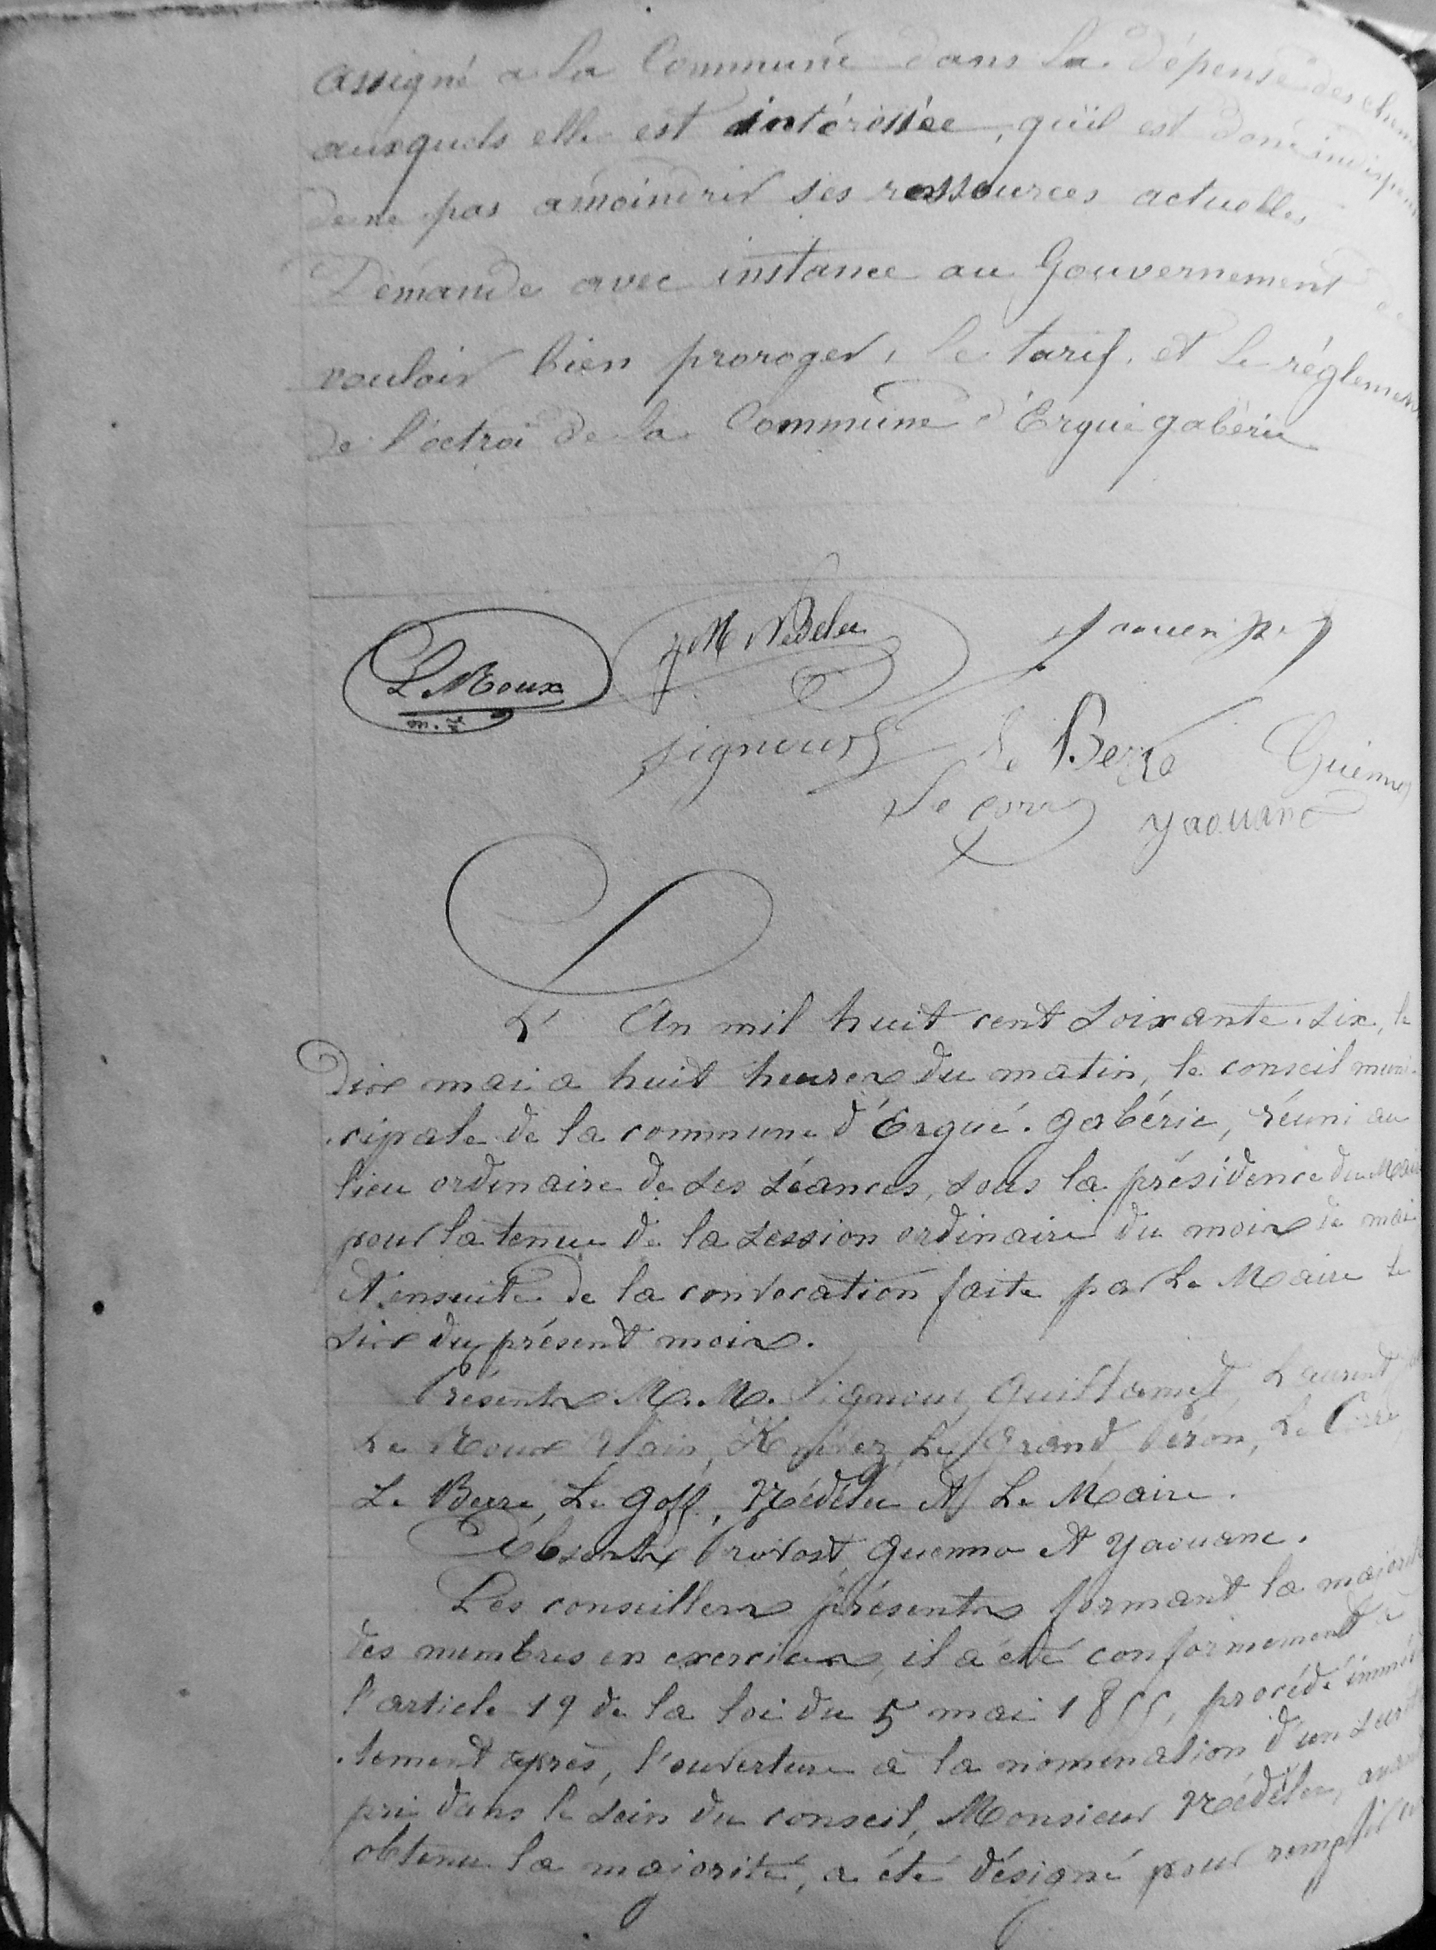 assigné a la Commune dans la dépense des
auxquels elle est intéréssée, qu'il est donc
de ne pas amoindrir ses ressources actuelles
Demande avec instance au Gouvernement de
vouloir bien proroger, le tarif, et le réglement
de l'octroi de la Commune d'Ergué gabéric
L. Roux
J M Nédélec
Signour
Le Berre
Guenno
Le Corre
Yaouanc
L' An mil huit cent soixante. six, le
Dix mai a huit heures du matin, le conseil muni-
cipale de la commune d'Ergué. gabéric, réuni au
lieu ordinaire de ses séances, sous la présidence du Maire
pour la tenue de la session ordinaire du mois de mai
Et ensuite de la convocation faite par Le Maire le
six du présent mois.
Présents M.M. Signour, Guillamet, Laurent
Le Roux Alain, Le Grand, Péron, Le Corre
Le Berre, Le Goff, Nédélec Et Le Maire.
Absents Provost, Guenno Et Yaouanc.
Les conseillers présents formant la majorité
des membres en exercices, il a été conformément à
l'article 19 de la loi du 5 mai 1855, procédé immé
tement après, l'ouverture à la nomination d'un
pri dans le sein du conseil, Monsieur Nédélec, ayant
obtenu la majorité, a été désigné pour remplir